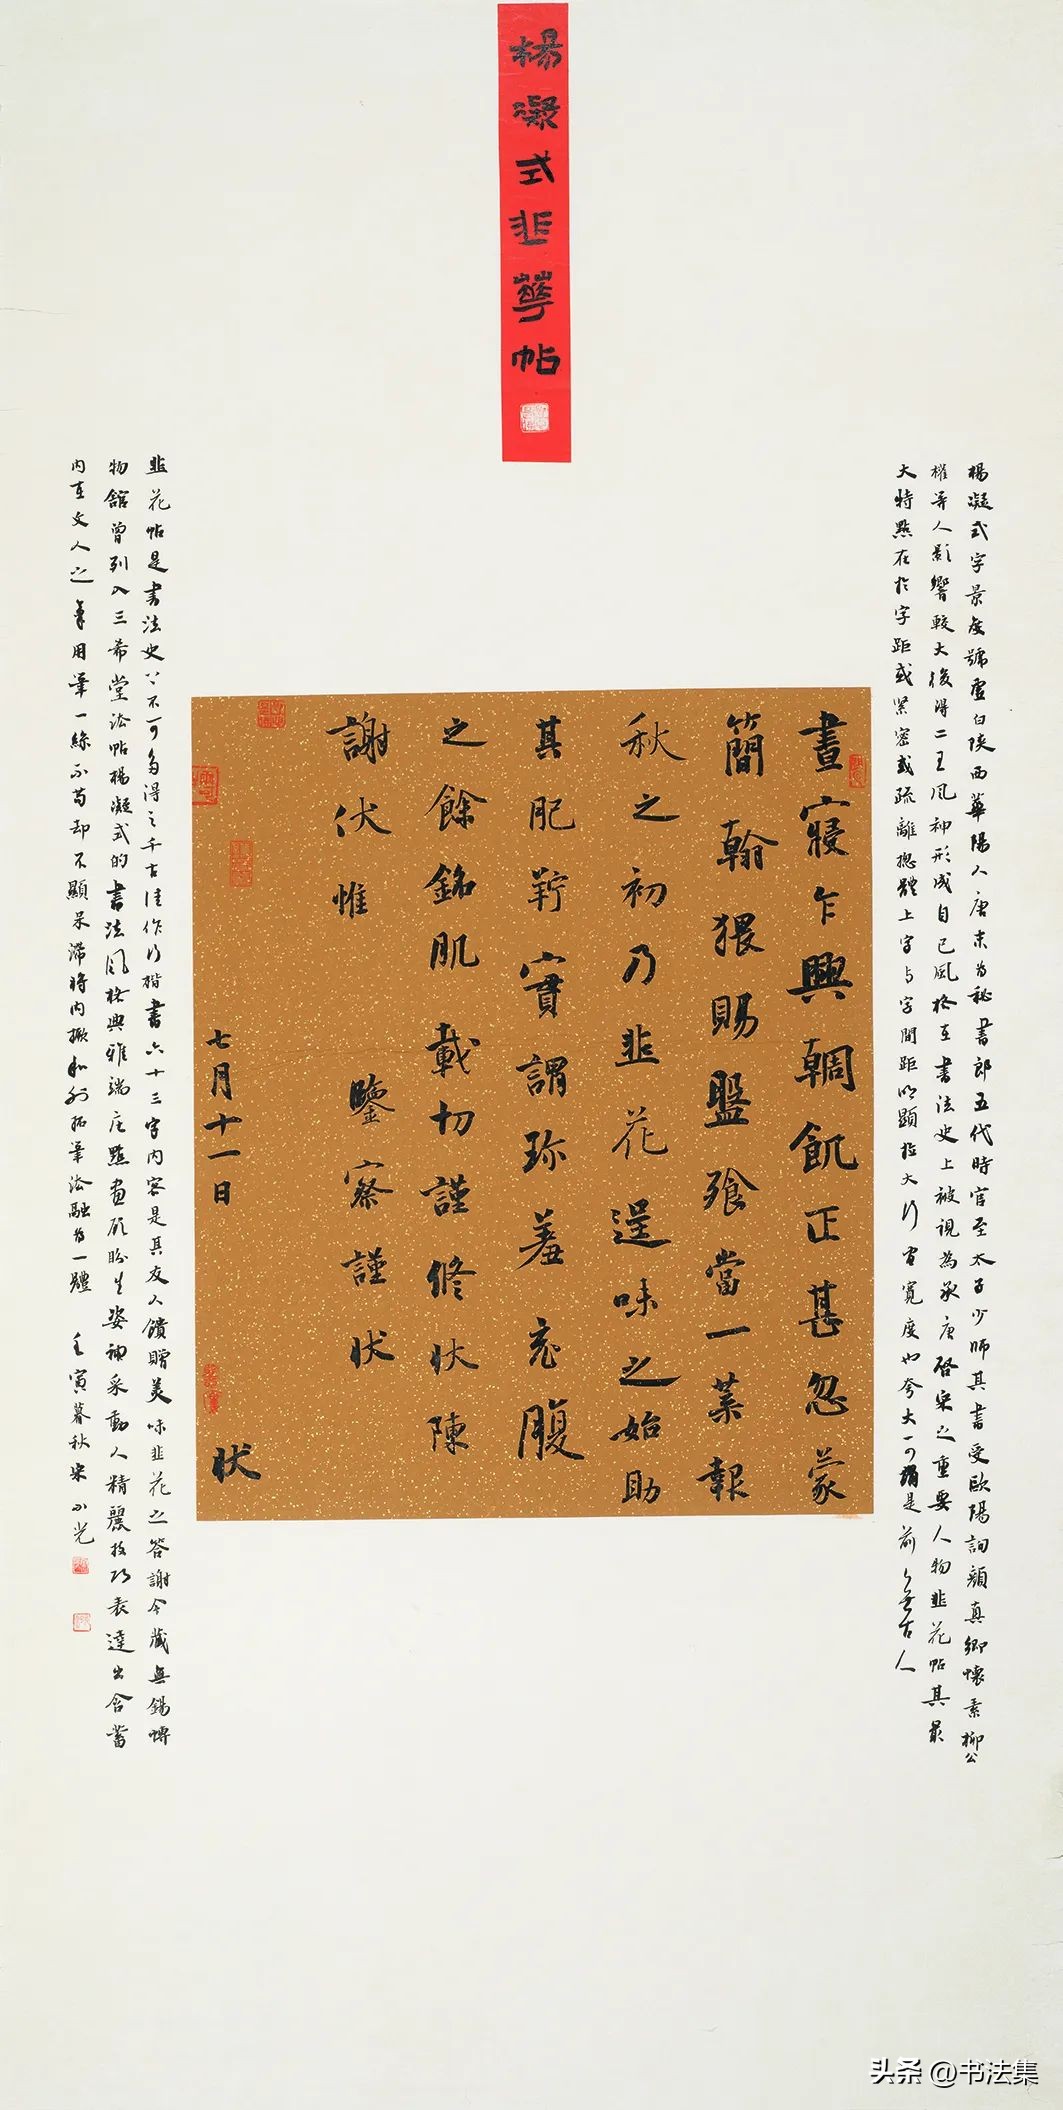 楊凝式韭華帖
楊凝式字景度號虛白陝西華陽人唐末為秘書郎五代時官至太子少師其書受歐陽詢顏真卿懷素柳公
權等人影響較大後得二王風神形成自己風格在書法史上被視為承唐啓宋之重要人物韭花帖其最
大特點在於字距或緊密或疏離揔體上字與字間距明顯拉大行間寬度也夸大一可謂是前人無古人
晝寢乍興輖飢正甚忽蒙
簡翰猥賜盤飱當一葉報
秋之初乃韭花逞味之始助
其肥羜實謂珍羞充腹
之餘銘肌載切謹修狀陳
謝伏惟
鑒察謹狀
七月十一日
狀
韭花帖是書法史上不可多得之千古佳作行楷書六十三字內容是其友人饋贈美味韭花之答謝今藏無錫博
物館曾列入三希堂法帖楊凝式的書法風格典雅端庄點畫顧盼生姿神采動人精麗技巧表達出含蓄
內在文人之氣用筆一絲不苟却不顯呆滯將內擫和外拓筆法融為一體
壬寅暮秋宋小光
头条 @书法集